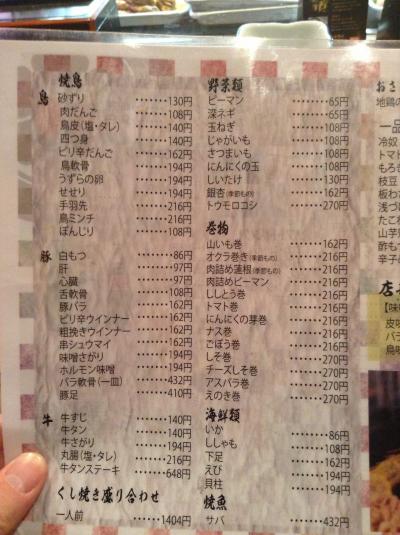 焼鳥
鳥 砂ずり ……130円
肉だんご ……108円
鳥皮(塩・タレ) ……140円
四つ身 ……140円
ピリ辛だんご ……162円
鳥軟骨 ……194円
うずらの卵 ……194円
せせり ……194円
手羽先 ……216円
鳥ミンチ ……216円
ぼんじり ……108円
豚 白もつ ……86円
肝 ……97円
心臓 ……97円
舌軟骨 ……108円
豚バラ ……162円
ピリ辛ウインナー ……162円
粗挽きウインナー ……162円
串シュウマイ ……162円
味噌さがり ……194円
ホルモン味噌 ……194円
バラ軟骨(一皿) ……432円
豚足 ……410円
牛 牛すじ ……140円
牛タン ……140円
牛さがり ……194円
丸腸(塩・タレ) ……216円
牛タンステーキ ……648円
くし焼き盛り合わせ
一人前 ……1404円
野菜類
ピーマン ……65円
深ネギ ……65円
玉ねぎ ……108円
じゃがいも ……108円
さつまいも ……108円
にんにくの玉 ……108円
しいたけ ……130円
銀杏(季節もの) ……162円
トウモロコシ ……270円
巻物
山いも巻 ……162円
オクラ巻き(季節もの) ……216円
肉詰め蓮根(季節もの) ……216円
肉詰めピーマン ……216円
ししとう巻 ……216円
トマト巻 ……216円
にんにくの芽巻 ……216円
ナス巻 ……216円
ごぼう巻 ……216円
しそ巻 ……216円
チーズしそ巻 ……216円
アスパラ巻 ……216円
えのき巻 ……216円
海鮮類
いか ……86円
ししゃも ……108円
下足 ……162円
えび ……194円
貝柱 ……194円
焼魚
サバ ……432円
おさ
地鶏の
一品
冷奴
トマト
もろき
枝豆
板わさ
浅づけ
たこわ
山芋
酢もつ
辛子
店
【味
皮
バラ
鳥